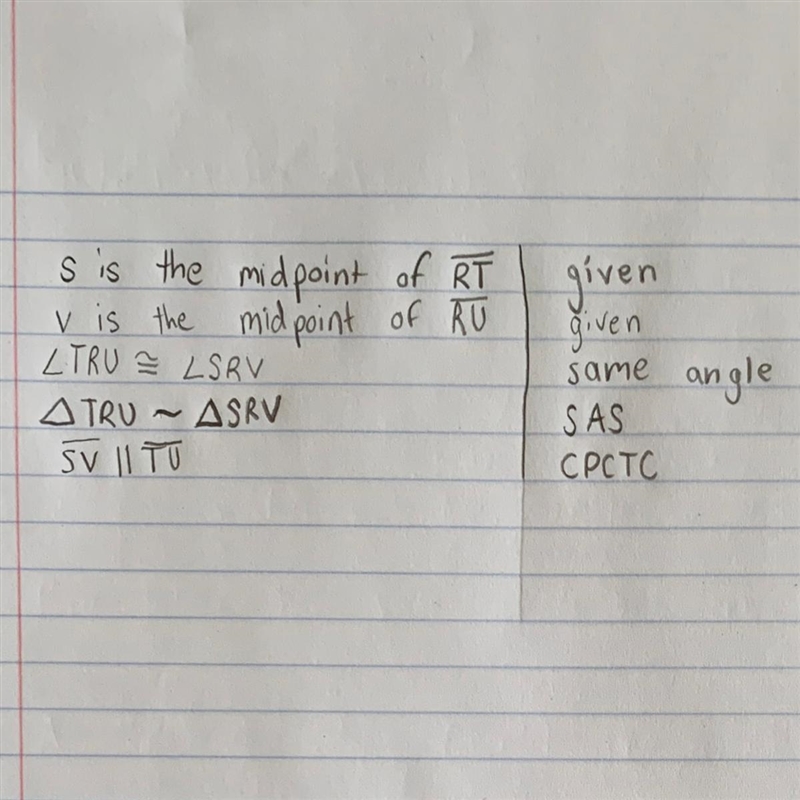 S is the midpoint of R̅T̅ given
V is the midpoint of R̅U̅ given
∠TRU ≅ ∠SRV same angle
△TRU ~ △SRV SAS
S̅V̅ || T̅U̅ CPCTC